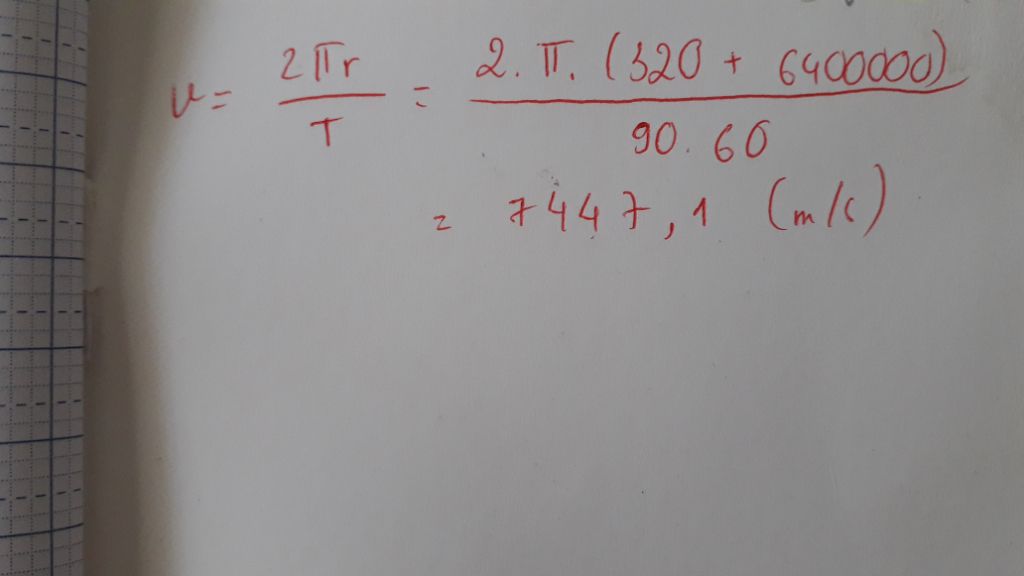 v = 2πr / T = 2. π. (320 + 6400000) / 90. 60
= 7447,1 (m/s)